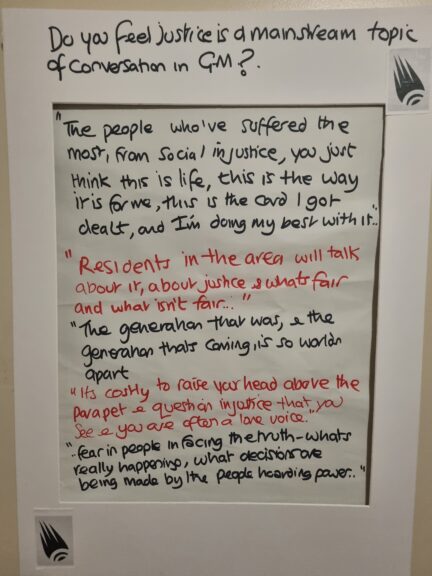 Do you feel justice is a mainstream topic
of conversation in GM?
"The people who've suffered the
most, from social injustice, you just
think this is life, this is the way
it is for me, this is the card I got
dealt, and I'm doing my best with it.."
"Residents in the area will talk
about it, about justice & whats fair
and what isn't fair..."
"The generation that was, & the
generation thats coming, is so worlds
apart
"Its costly to raise your head above the
parapet & question injustice that you
see & you are often a lone voice."
"..fear in people in facing the truth - whats
really happening, what decisions are
being made by the people hoarding power.."